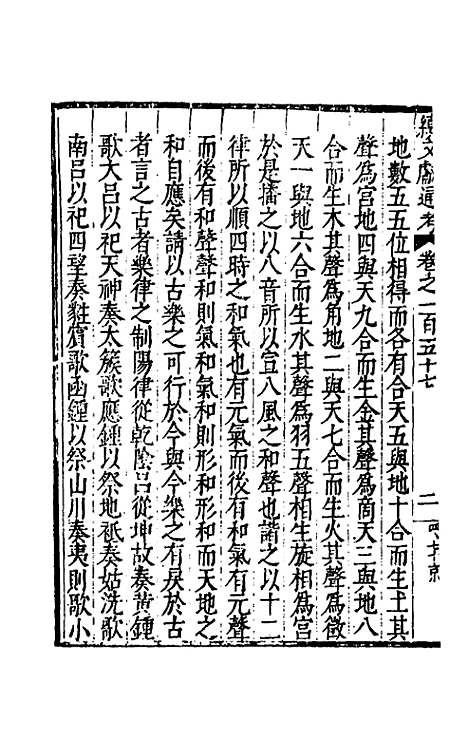 續文獻通考 卷之一百五十七 二
地數五五位相得而各有合天五與地十合而生土其
聲爲宮地四與天九合而生金其聲爲商天三與地八
合而生木其聲爲角地二與天七合而生火其聲爲徵
天一與地六合而生水其聲爲羽五聲相生旋相爲宮
於是播之以八音所以宣八風之和聲也諧之以十二
律所以順四時之和氣也有元氣而後有和氣有元聲
而後有和聲聲和則氣和氣和則形和形和而天地之
和自應矣請以古樂之可行於今與今樂之有戾於古
者言之古者樂律之制陽律從乾陰呂從坤故奏黃鍾
歌大呂以祀天神奏太簇歌應鍾以祭地祇奏姑洗歌
南呂以祀四望奏蕤賓歌函鍾以祭山川奏夷則歌小